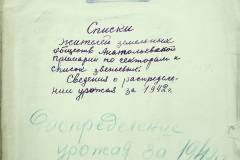 Списки
жителей земельных
обществ Анатольевской
примарии по секторам и
список звеньевых.
Сведения о распределе-
нии урожая за 1942 г.
Распределение
урожая за 194